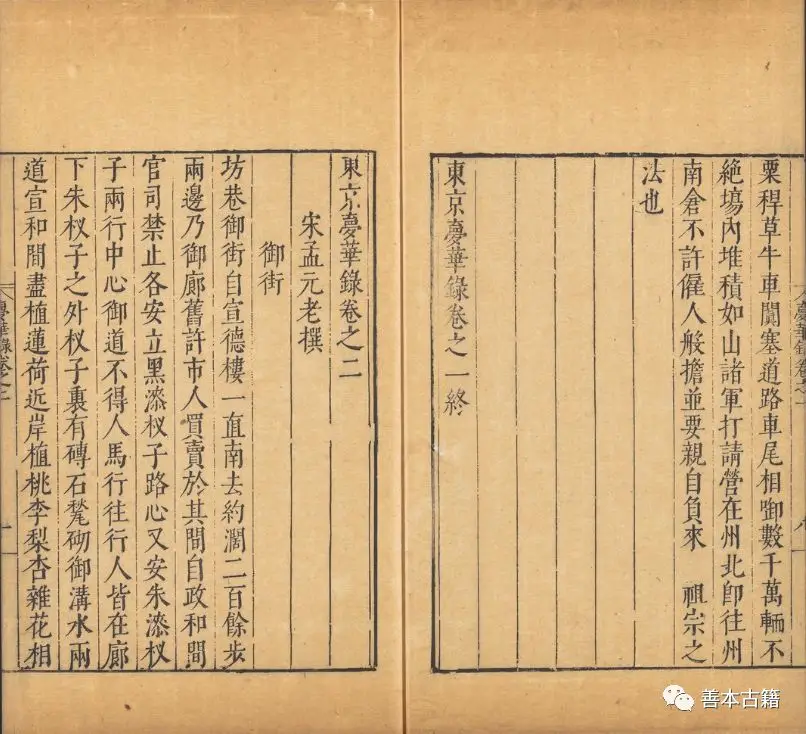 粟稈草牛車闐塞道路車尾相啣數千萬輛不
絶塲內堆積如山諸軍打請營在州北卽往州
南倉不許僱人般擔並要親自負來　祖宗之
法也
東京夢華錄卷之一終
東京夢華錄卷之二
宋孟元老撰
御街
坊巷御街自宣德樓一直南去約濶二百餘步
兩邊乃御廊舊許市人買賣於其間自政和間
官司禁止各安立黑漆杈子路心又安朱漆杈
子兩行中心御道不得人馬行往行人皆在廊
下朱杈子之外杈子裏有磚石甃砌御溝水兩
道宣和間盡植蓮荷近岸植桃李梨杏雜花相
善本古籍